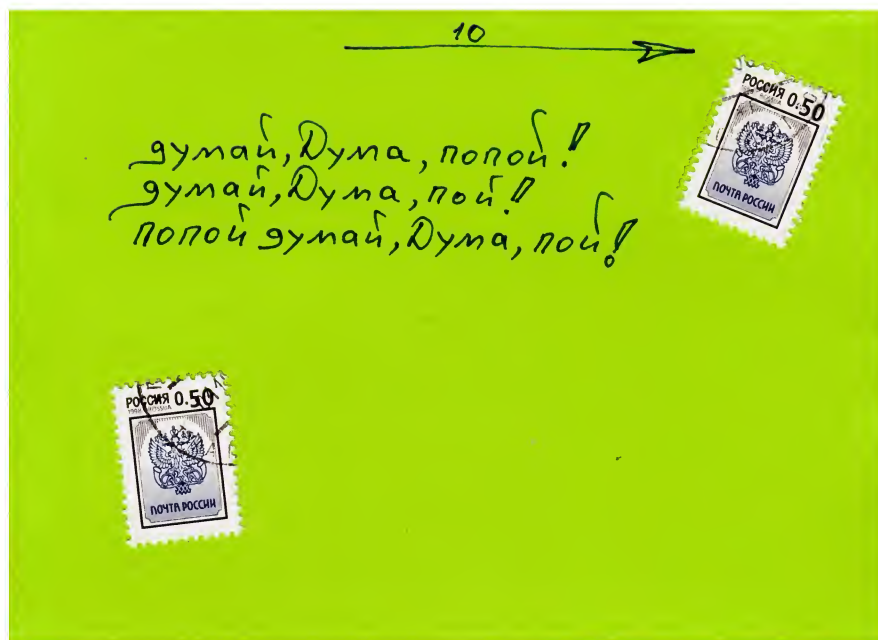 10
думай, Дума, попой!
думай, Дума, пой!
попой думай, Дума, пой!
РОССИЯ 0.50
ПОЧТА РОССИИ
РОССИЯ 0.50
ПОЧТА РОССИИ